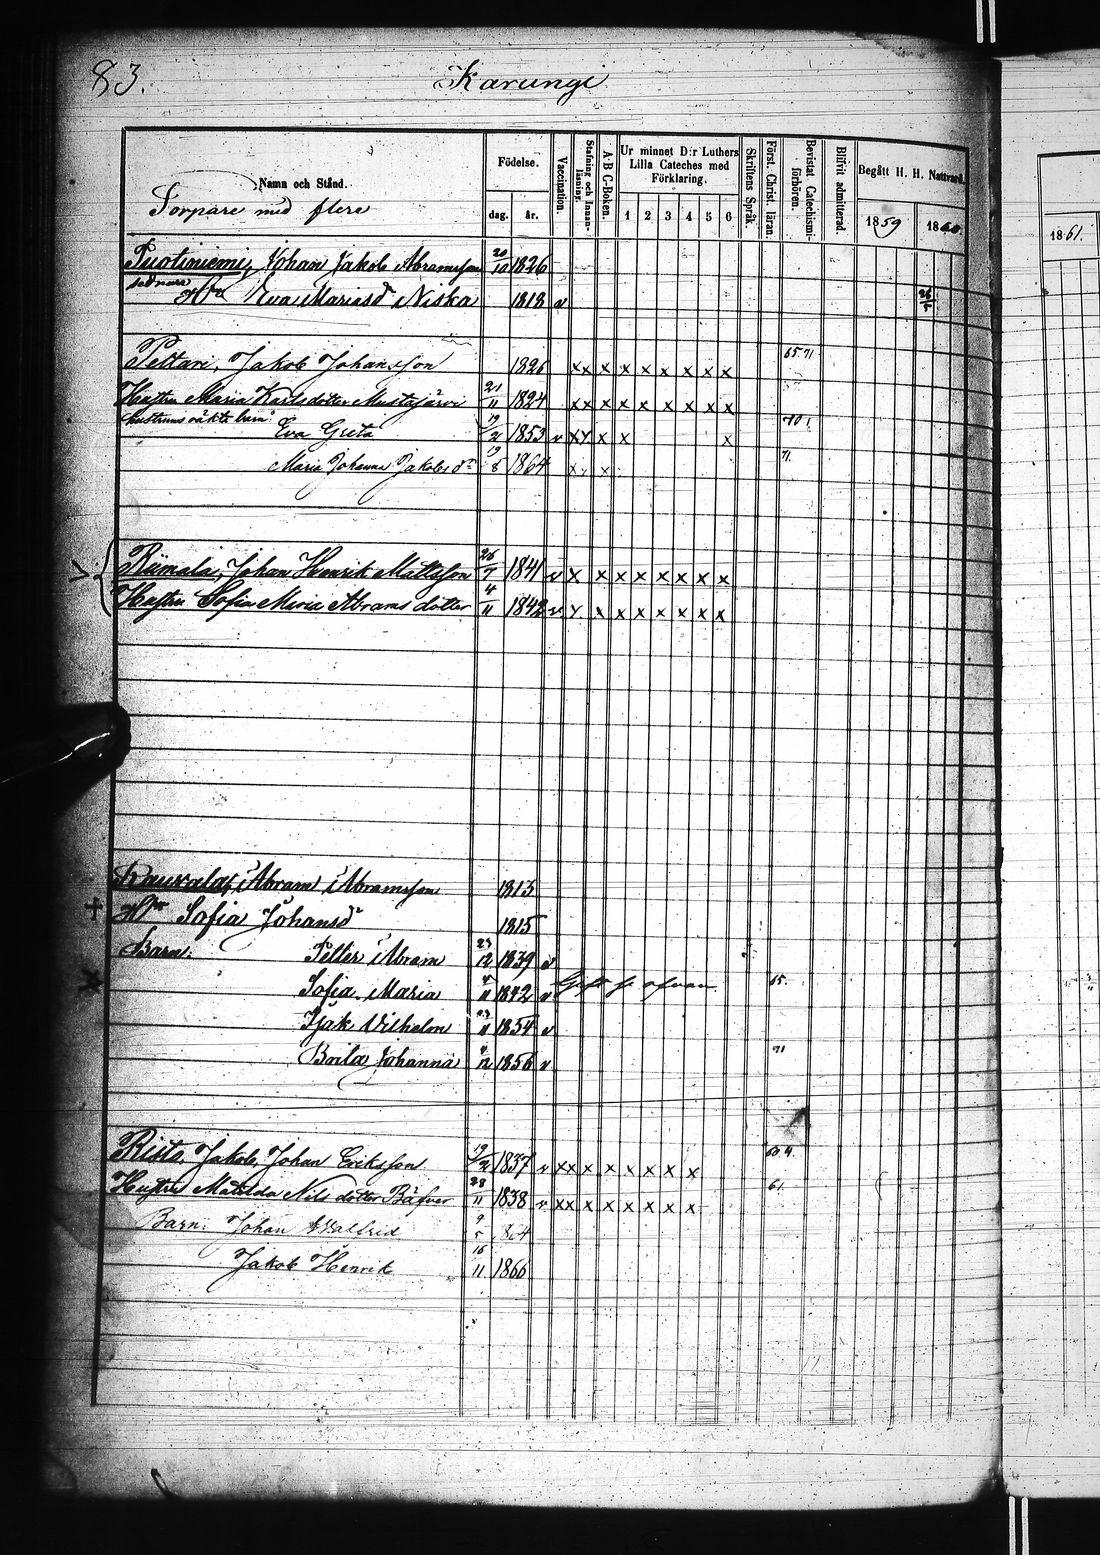 83.
Karungi
Namn och Stånd.
Torpare med flere
Födelse.
dag. år.
Vaccination.
Stafning och Innan-läsning.
A B C-Boken.
Ur minnet D:r Luthers Lilla Cateches med Förklaring.
1 2 3 4 5 6
Skriftens Språk.
Först. Christ. läran.
Bevistat Catechismi-förhören.
Blifvit admitterad
Begått H. H. Nattvard.
1859 1860
1861.
Puoliniemi, Johan Jakob Abramsson 20/10 1826
sednare Hu Eva Mariasd Niska 1818 v 26/5
Pettari, Jakob Johansson 1826 x x x x x x x x x 65 71
Hustru Maria Karlsdotter Mustajärvi 21/11 1824 x x x x x x x x x
hustruns oäkta barn: Eva Greta 19/2 1853 v x x x x x 70
Maria Johanna Jakobs dr 19/8 1864 x x x 71.
Riimala, Johan Henrik Mattsson 26/7 1841 v x x x x x x x x
Hustru Sofia Maria Abrams dotter 4/11 1842 v x x x x x x x x
Abram Abramsson 1813
+ Hu Sofia Johansd 1815
Barn: Petter Abram 23/12 1839 v
Sofia Maria 4/11 1842 v Gift se ofvan 65.
Isak Vilhelm 23/11 1854 v
Brita Johanna 11/12 1856 v 71
Risto, Jakob, Johan Eriksson 19/2 1837 v x x x x x x x x
Hustru Matilda Nils dotter Bäfver 28/11 1838 v x x x x x x x x 61
Barn: Johan Walfrid 9/5 864
Jakob Henrik 16/11 1866